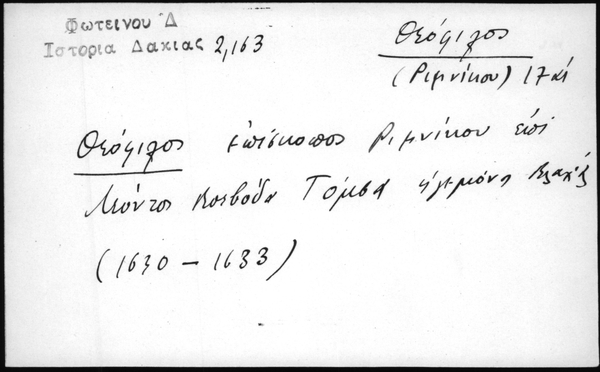 Φωτεινου Δ
Ιστορια Δακιας 2,163
Θεόφιλος
(Ριμνίκου) 17 αἰ
Θεόφιλος ἐπίσκοπος Ριμνίκου ἐπὶ
Λέοντος Βοεβόδα Τόμσα ἡγεμόνα Βλαχίας
(1630 - 1633)